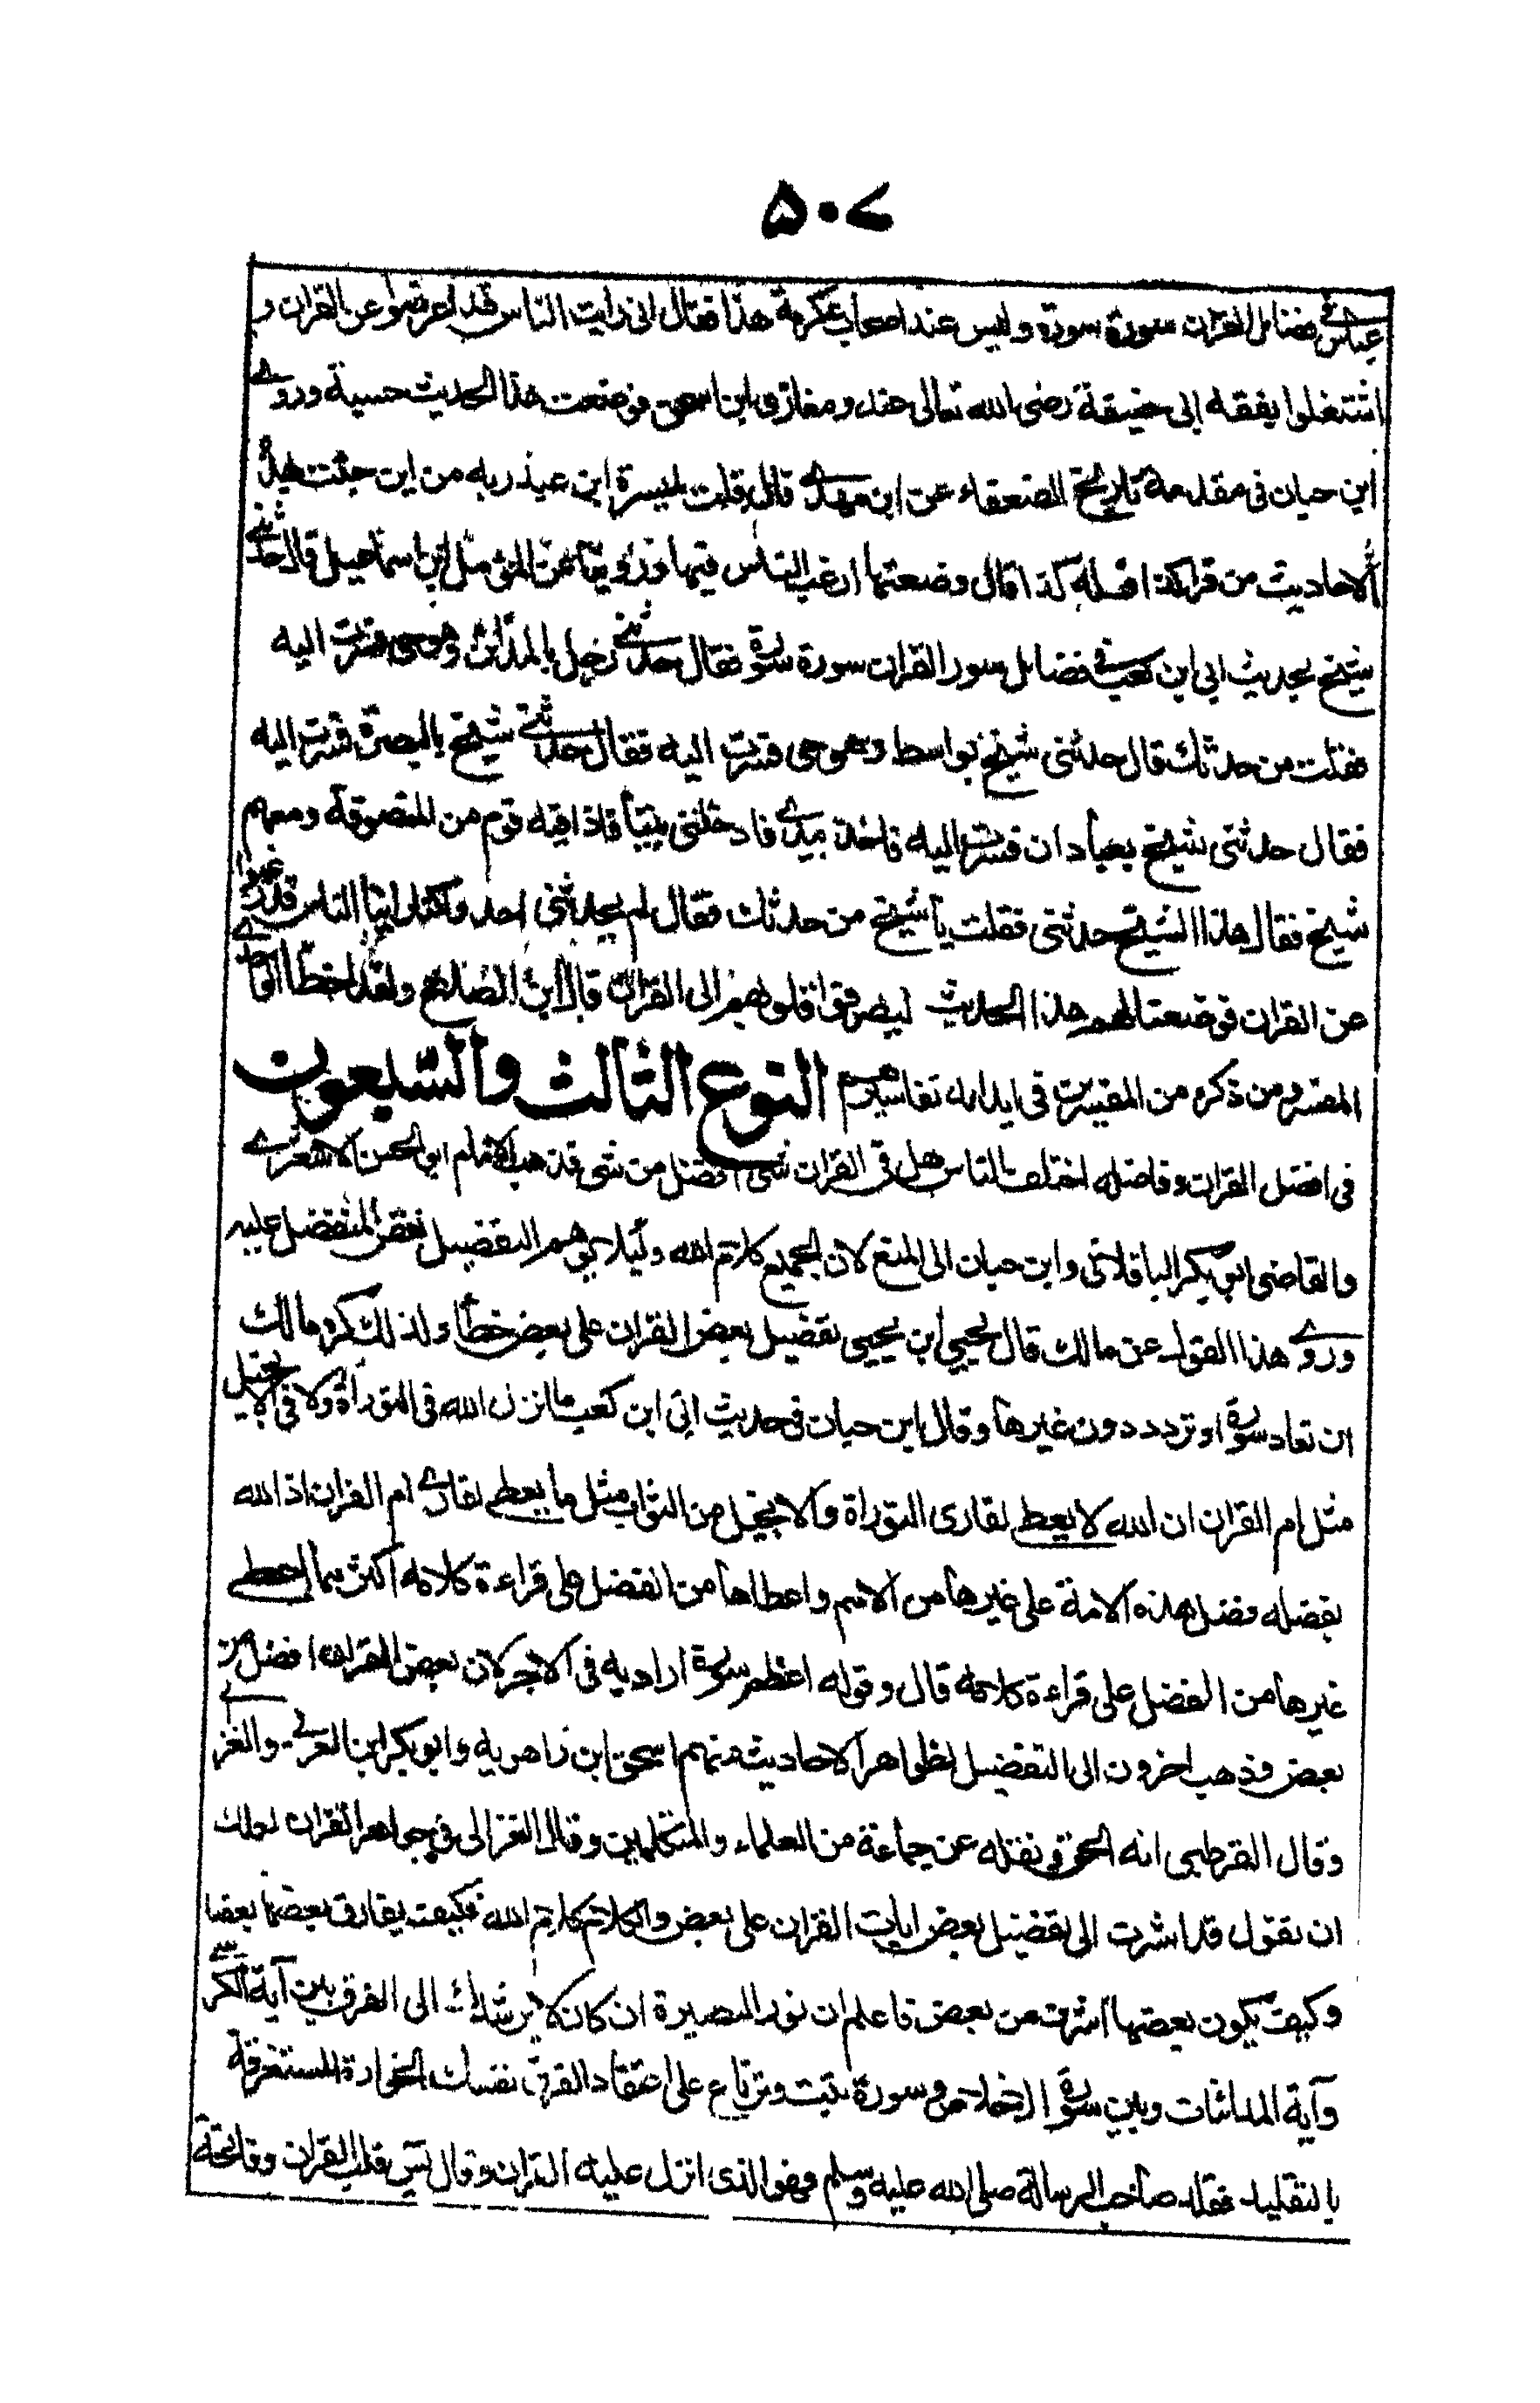 ۵۰۷
عباس في فضائل القران سورة سورة وليس عند اصحاب عكرمة هذا فقال انى رايت الناس قد اعرضوا عن القران و
اشتغلوا بفقه ابى حنيفة رضى الله تعالى عنه ومغازى ابن اسحق فوضعت هذا الحديث حسبة وروى
ابن حبان فى مقدمة تاريخ الضعفاء عن ابن مهدى قال قلت لميسرة ابن عبد ربه من اين جئت هذه
الاحاديث من قرا كذا فله كذا قال وضعتها ارغب الناس فيها وروينا عن المؤمل ابن اسماعيل قال حدثنى
شيخ بحديث ابى ابن كعب فى فضائل سور القران سورة سورة فقال حدثنى رجل بالمدائن وهو حى فسرت اليه
فقلت من حدثك قال حدثنى شيخ بواسط وهو حى فسرت اليه فقال حدثنى شيخ بالبصرة فسرت اليه
فقال حدثنى شيخ بعبادان فسرت اليه فاخذ بيدى فادخلنى بيتا فاذا فيه قوم من المتصوفة ومعهم
شيخ فقال هذا الشيخ حدثنى فقلت يا شيخ من حدثك فقال لم يحدثنى احد ولكنا راينا الناس قد رغبوا
عن القران فوضعنا لهم هذا الحديث ليصرفوا قلوبهم الى القران قال ابن الصلاح ولقد اخطا الواحدى
المفسر ومن ذكره من المفسرين فى ايداعه تفاسيرهم النوع الثالث والسبعون
فى افضل القران وفاضله اختلف الناس هل فى القران شئ افضل من شئ فذهب الامام ابو الحسن الاشعرى
والقاضى ابو بكر الباقلانى وابن حبان الى المنع لان الجميع كلام الله ولئلا يوهم التفضيل نقص المفضل عليه
وروى هذا القول عن مالك قال يحيى ابن يحيى تفضيل بعض القران على بعض خطا ولذلك كره مالك
ان تعاد سورة او تردد دون غيرها وقال ابن حبان فى حديث ابى ابن كعب ما نزل الله فى التوراة ولا فى الانجيل
مثل ام القران ان الله لا يعطى لقارى التوراة والانجيل من الثواب مثل ما يعطى لقارى ام القران اذ الله
بفضله فضل هذه الامة على غيرها من الامم واعطاها من الفضل على قراءة كلامه اكثر مما اعطى
غيرها من الفضل على قراءة كلامه قال وقوله اعظم سورة اراد به فى الاجر لان بعض القران افضل من
بعض وذهب اخرون الى التفضيل لظواهر الاحاديث منهم اسحق ابن راهويه وابو بكر ابن العربى والغزالى
وقال القرطبى انه الحق ونقله عن جماعة من العلماء والمتكلمين وقال الغزالى فى جواهر القران لعلك
ان تقول قد اشرت الى تفضيل بعض ايات القران على بعض والكلام كلام الله فكيف يفارق بعضها بعضا
وكيف يكون بعضها اشرف من بعض فاعلم ان نور البصيرة ان كان لا يرشدك الى الفرق بين آية الكرسى
وآية المداينات وبين سورة الاخلاص وسورة تبت وترتاع على اعتقاد الفرق نفسك الخوارة المستغرقة
بالتقليد فقلد صاحب الرسالة صلى الله عليه وسلم فهو الذى انزل عليه القران وقال يس قلب القران وفاتحة